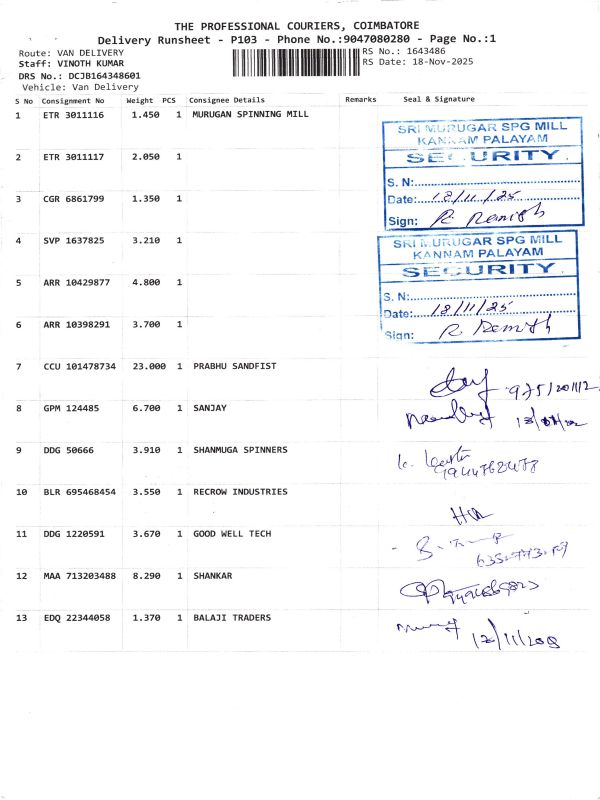 THE PROFESSIONAL COURIERS, COIMBATORE
Delivery Runsheet - P103 - Phone No.:9047080280 - Page No.:1
Route: VAN DELIVERY
RS No.: 1643486
Staff: VINOTH KUMAR
RS Date: 18-Nov-2025
DRS No.: DCJB164348601
Vehicle: Van Delivery
S No Consignment No Weight PCS Consignee Details Remarks Seal & Signature
1 ETR 3011116 1.450 1 MURUGAN SPINNING MILL
SRI MURUGAR SPG MILL
KANNAM PALAYAM
2 ETR 3011117 2.050 1
SECURITY
S. N:
3 CGR 6861799 1.350 1
Date: 18/11/25
Sign: R
4 SVP 1637825 3.210 1
SRI MURUGAR SPG MILL
KANNAM PALAYAM
SECURITY
5 ARR 10429877 4.800 1
S. N:
Date: 18/11/25
6 ARR 10398291 3.700 1
Sign: R
7 CCU 101478734 23.000 1 PRABHU SANDFIST
8 GPM 124485 6.700 1 SANJAY
9 DDG 50666 3.910 1 SHANMUGA SPINNERS
10 BLR 695468454 3.550 1 RECROW INDUSTRIES
11 DDG 1220591 3.670 1 GOOD WELL TECH
12 MAA 713203488 8.290 1 SHANKAR
13 EDQ 22344058 1.370 1 BALAJI TRADERS